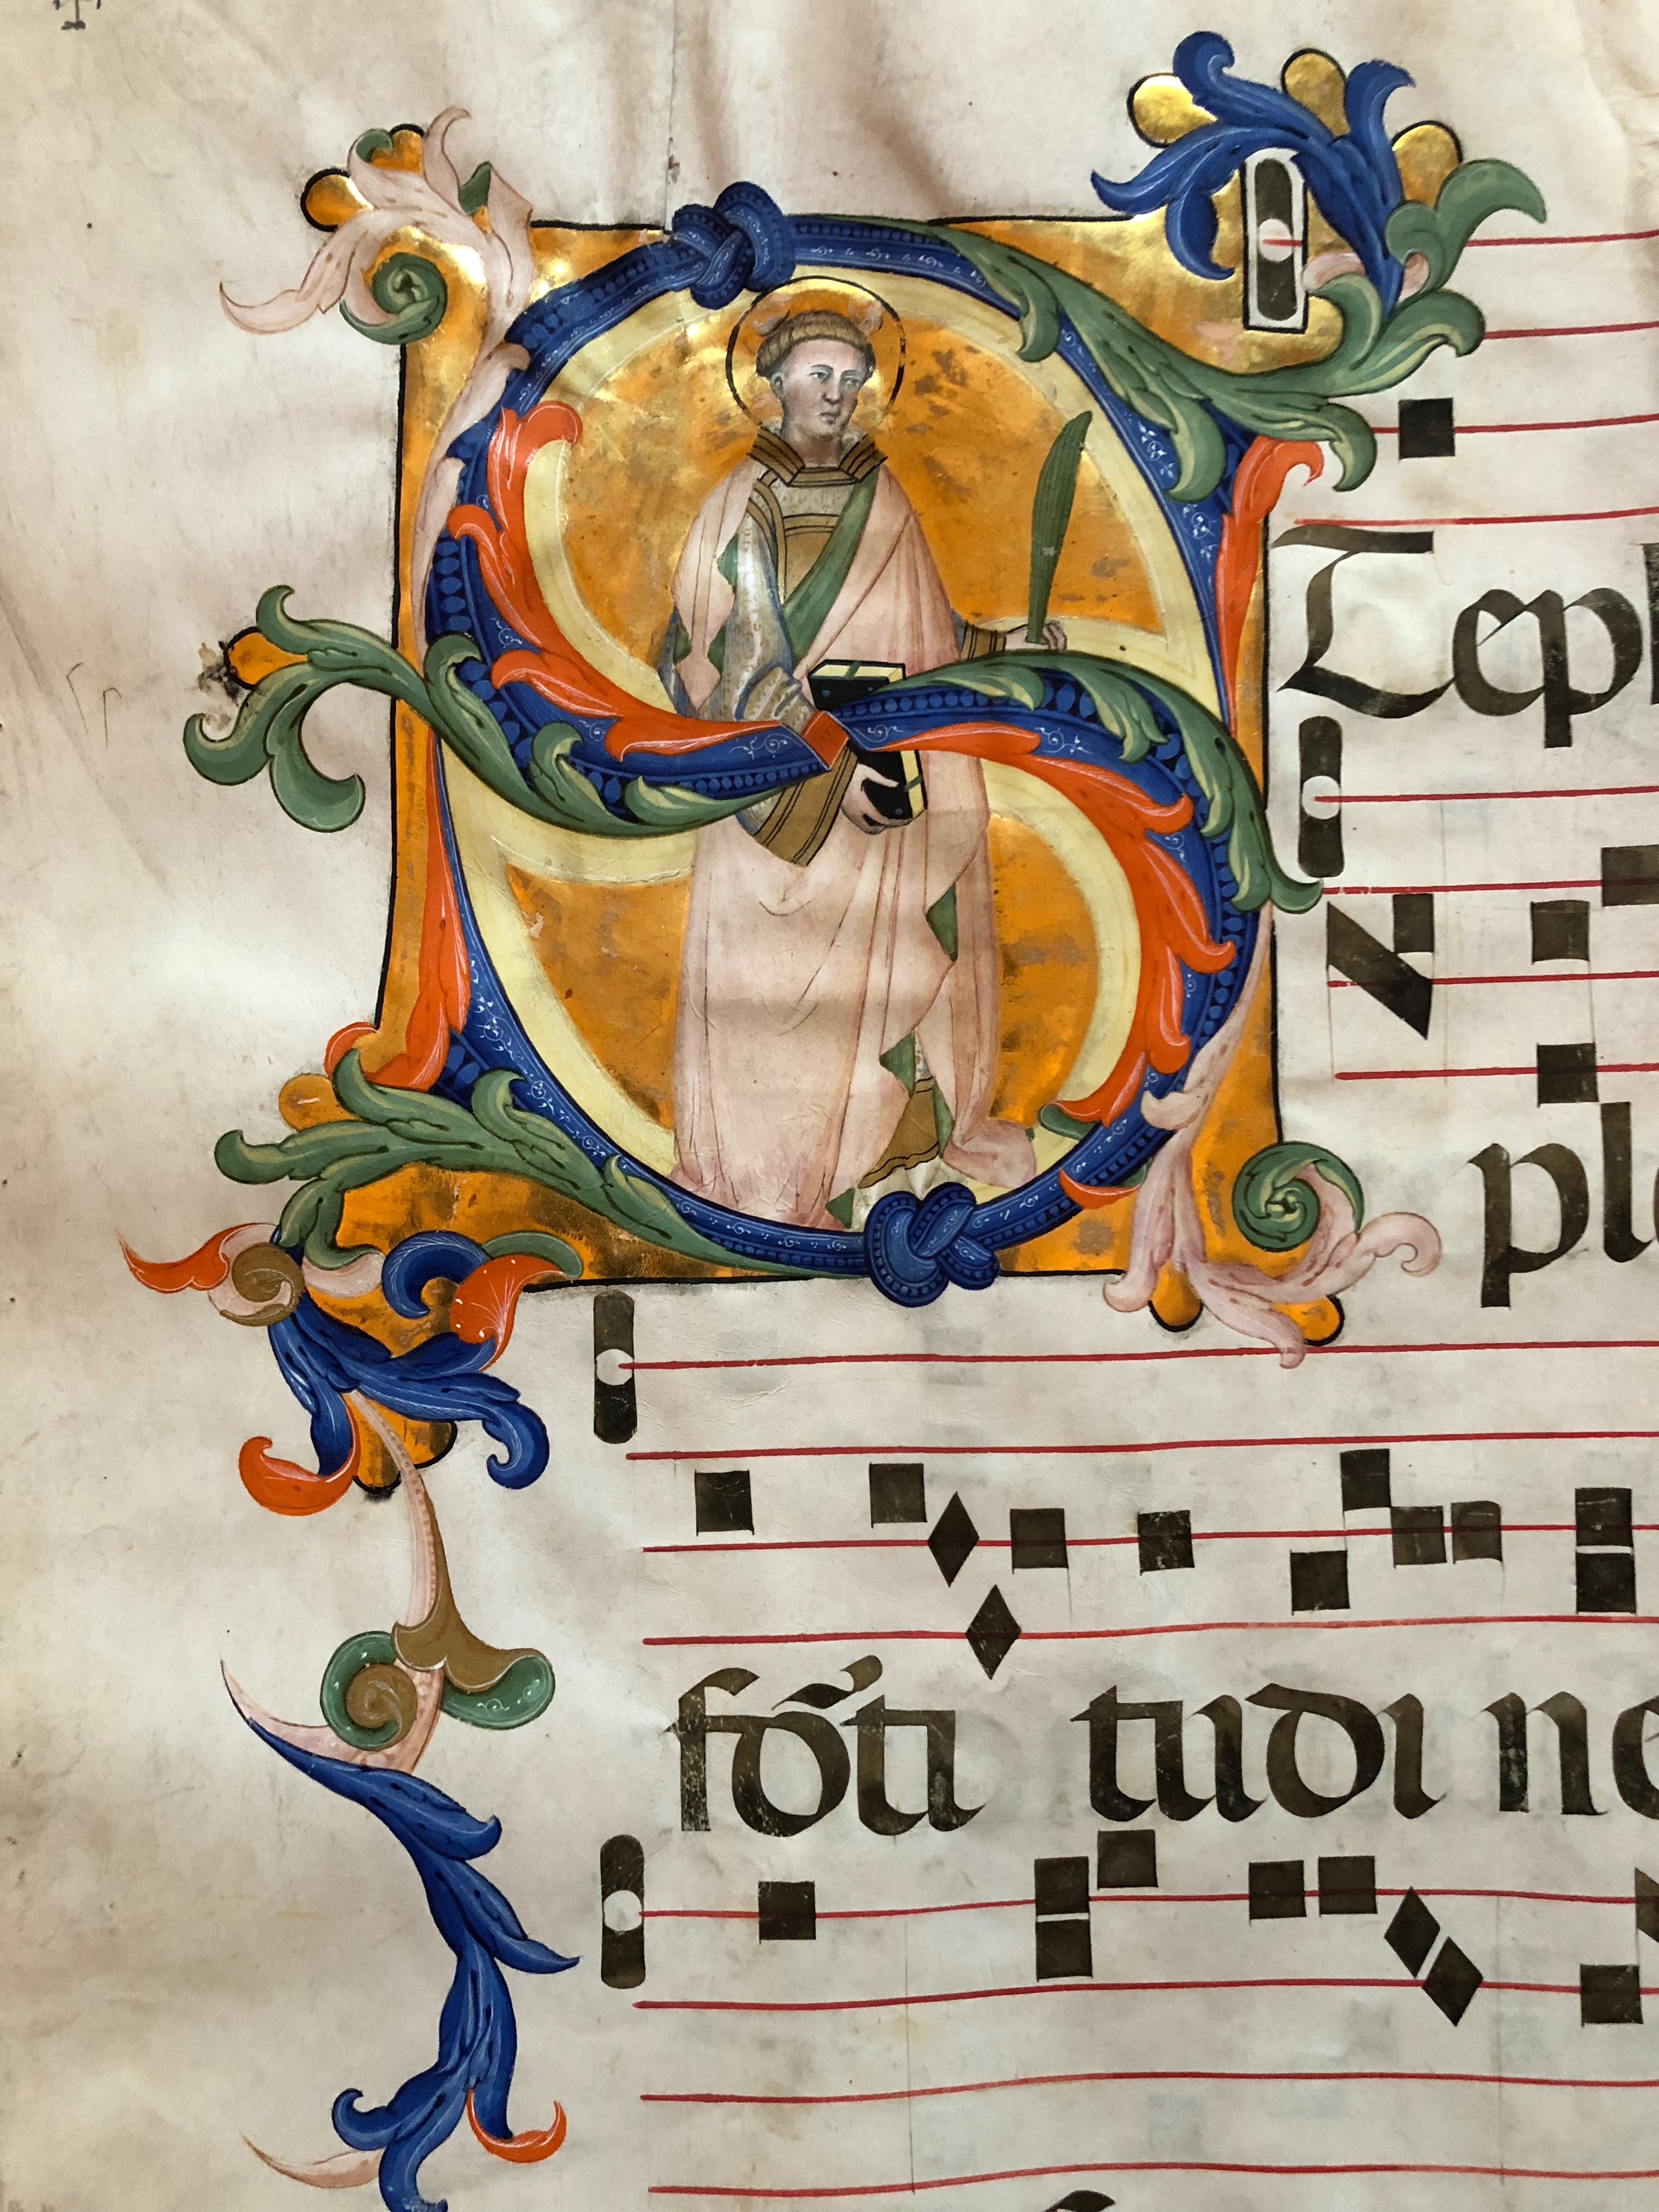 STeph
ple
fõti tudi ne